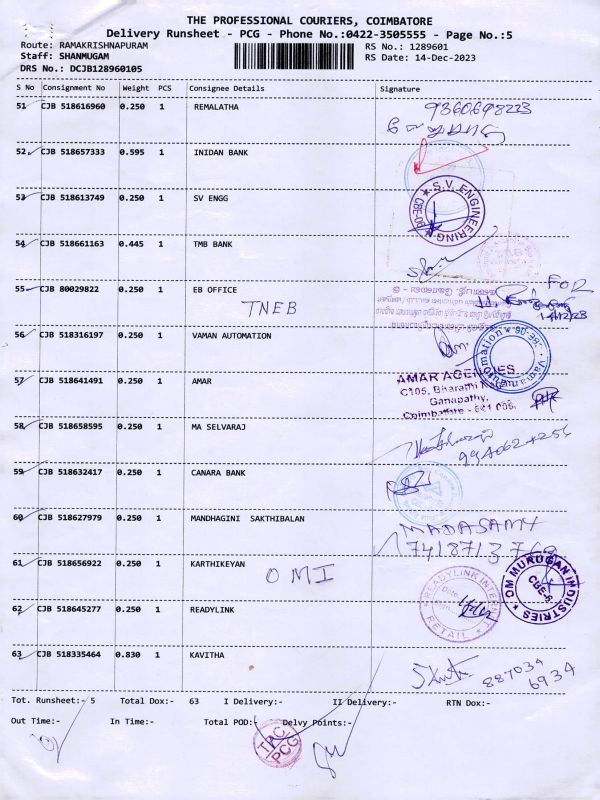 THE PROFESSIONAL COURIERS, COIMBATORE
Delivery Runsheet - PCG - Phone No.:0422-3505555 - Page No.:5
Route: RAMAKRISHNAPURAM
RS No.: 1289601
Staff: SHANMUGAM
RS Date: 14-Dec-2023
DRS No.: DCJB128960105
S No Consignment No Weight PCS Consignee Details Signature
51 CJB 518616960 0.250 1 REMALATHA
52 CJB 518657333 0.595 1 INIDAN BANK
53 CJB 518613749 0.250 1 SV ENGG
S.V. ENGINEERING
54 CJB 518661163 0.445 1 TMB BANK
55 CJB 80029822 0.250 1 EB OFFICE
TNEB
FOR
14/12/23
56 CJB 518316197 0.250 1 VAMAN AUTOMATION
57 CJB 518641491 0.250 1 AMAR
AMAR AGENCIES
C105, Bharathi
Ganapathy,
Coimbatore - 641 006
58 CJB 518658595 0.250 1 MA SELVARAJ
59 CJB 518632417 0.250 1 CANARA BANK
60 CJB 518627979 0.250 1 MANDHAGINI SAKTHIBALAN
MADASAMY
61 CJB 518656922 0.250 1 KARTHIKEYAN
OMI
OM MURUGAN INDUSTRIES
CBE-6
62 CJB 518645277 0.250 1 READYLINK
READYLINK INTERNET
RETAIL
63 CJB 518335464 0.830 1 KAVITHA
887034
6934
Tot. Runsheet:- 5 Total Dox:- 63 I Delivery:- II Delivery:- RTN Dox:-
Out Time:- In Time:- Total POD:- Delvy Points:-
PCG